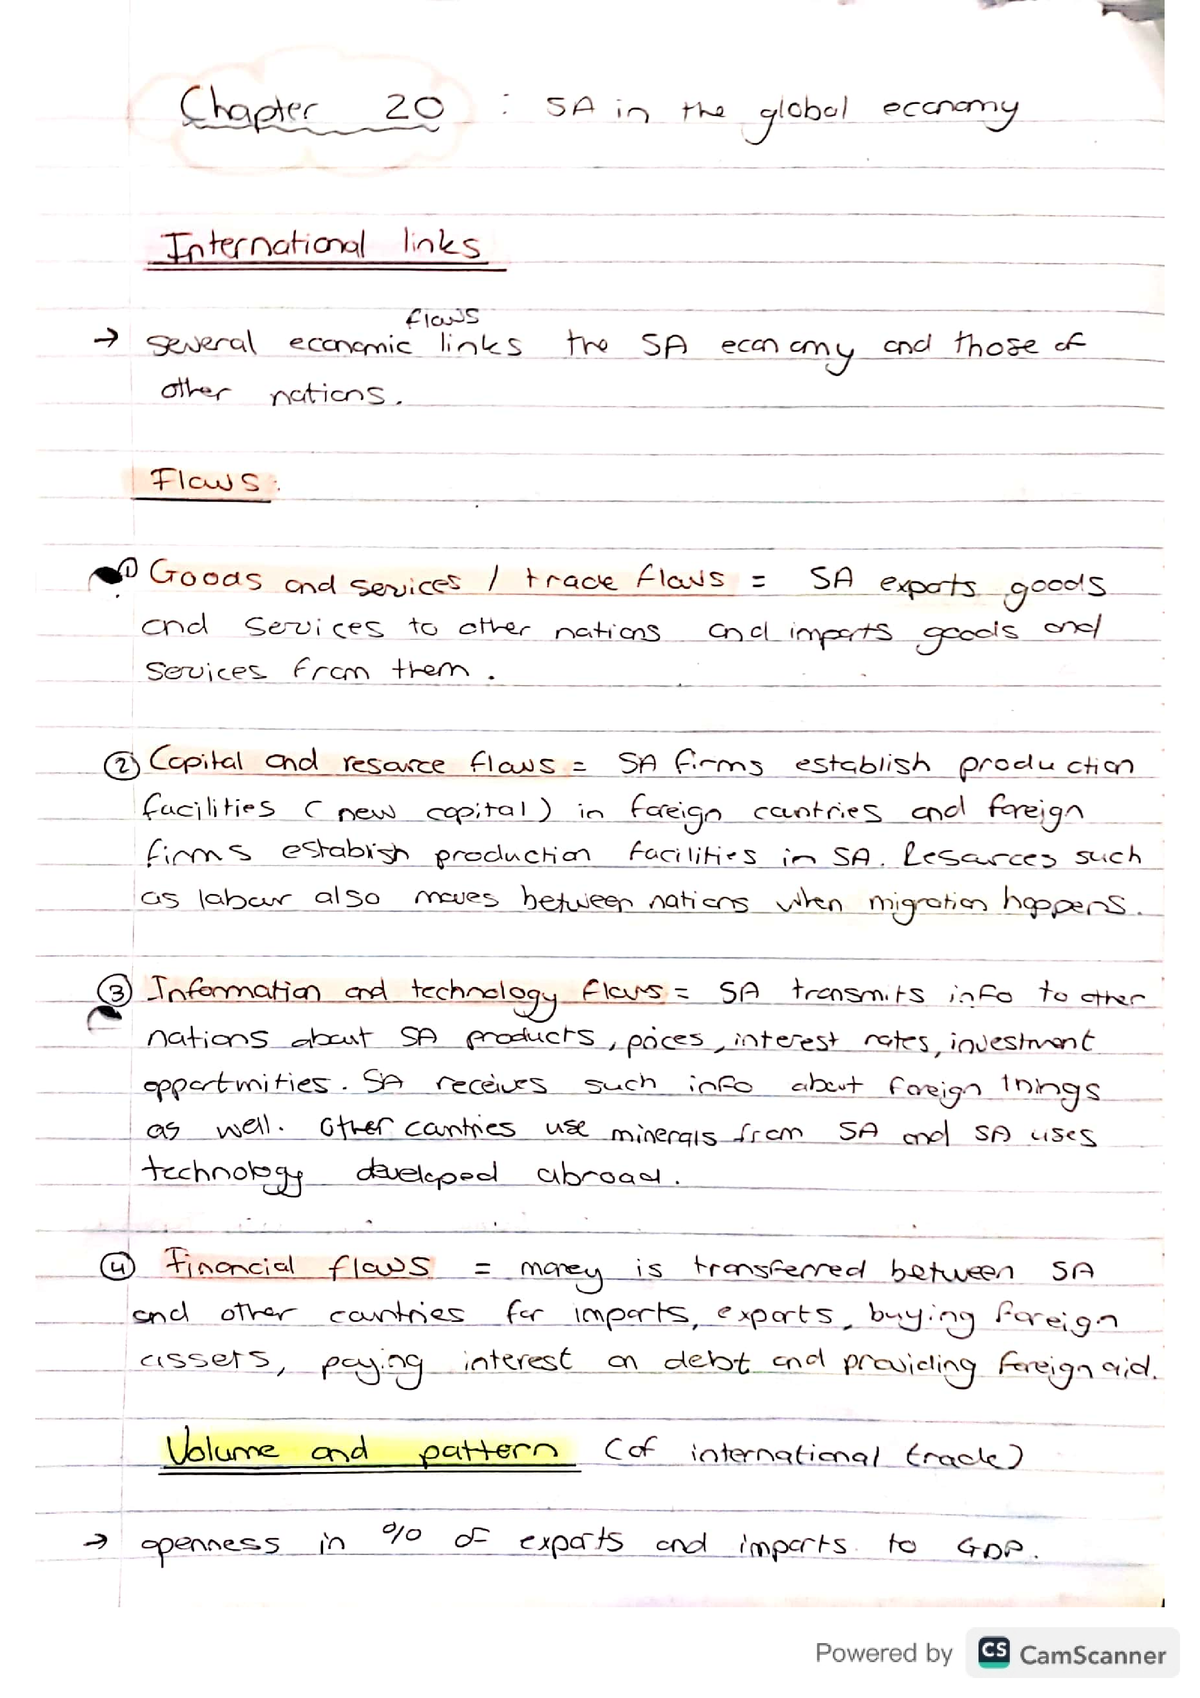 Chapter 20 : SA in the global economy
International links
flows
→ several economic links the SA economy and those of
other nations.
Flows:
① Goods and services / trade flows = SA exports goods
and services to other nations and imports goods and
services from them.
② Capital and resource flows = SA firms establish production
facilities (new capital) in foreign countries and foreign
firms establish production facilities in SA. Resources such
as labour also moves between nations when migration happens.
③ Information and technology flows = SA transmits info to other
nations about SA products, prices, interest rates, investment
opportunities. SA receives such info about foreign things
as well. Other countries use minerals from SA and SA uses
technology developed abroad.
④ Financial flows = money is transferred between SA
and other countries for imports, exports, buying foreign
assets, paying interest on debt and providing foreign aid.
Volume and pattern (of international trade)
→ openness in % of exports and imports to GDP.
Powered by CS CamScanner